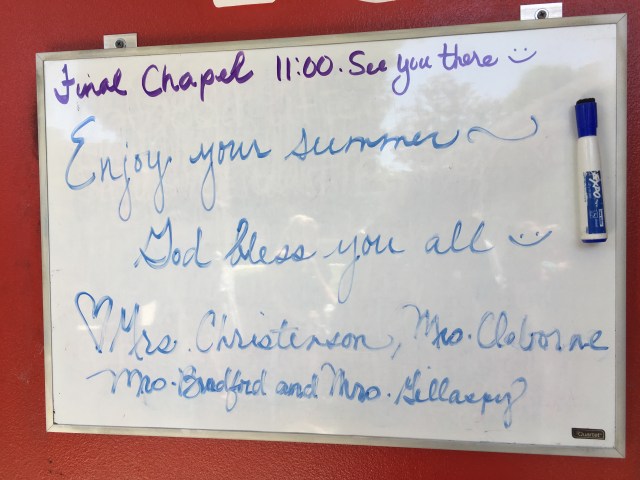 Final Chapel 11:00. See you there
Enjoy your summer
God bless you all
Mrs. Christenson, Mrs. Claborne
Mrs. Bradford and Mrs. Gillaspy
EXPO
Quartet